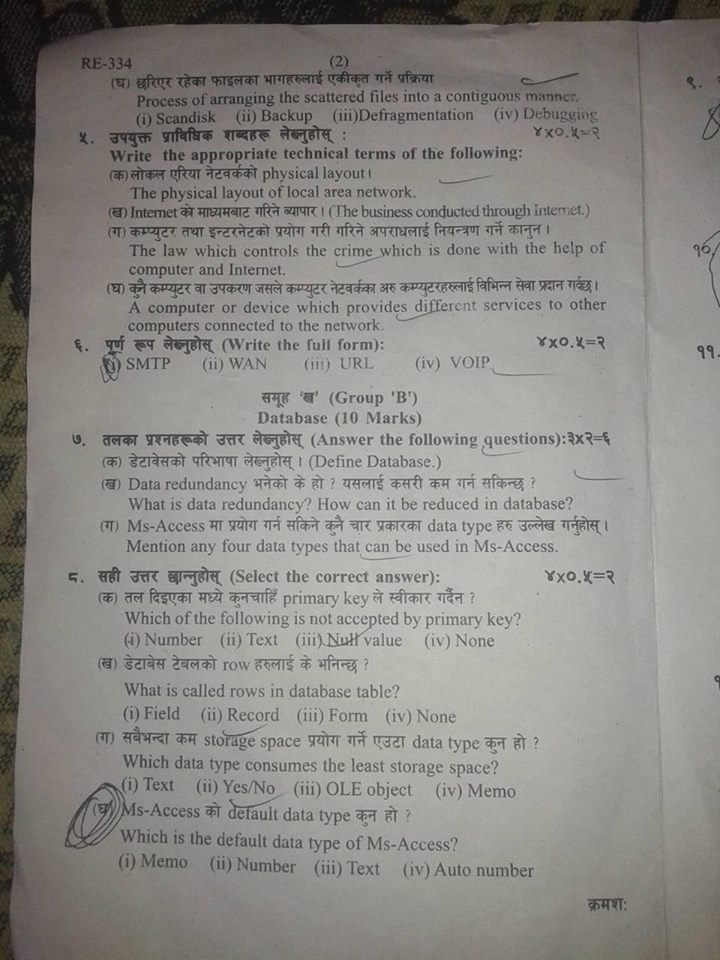 RE-334 (2)
(घ) छरिएर रहेका फाइलका भागहरुलाई एकीकृत गर्ने प्रक्रिया
Process of arranging the scattered files into a contiguous manner.
(i) Scandisk (ii) Backup (iii)Defragmentation (iv) Debugging
५. उपयुक्त प्राविधिक शब्दहरू लेख्नुहोस् : ४×०.५=२
Write the appropriate technical terms of the following:
(क) लोकल एरिया नेटवर्कको physical layout।
The physical layout of local area network.
(ख) Internet को माध्यमबाट गरिने व्यापार। (The business conducted through Internet.)
(ग) कम्प्युटर तथा इन्टरनेटको प्रयोग गरी गरिने अपराधलाई नियन्त्रण गर्ने कानुन।
The law which controls the crime which is done with the help of
computer and Internet.
(घ) कुनै कम्प्युटर वा उपकरण जसले कम्प्युटर नेटवर्कका अरु कम्प्युटरहरुलाई विभिन्न सेवा प्रदान गर्दछ।
A computer or device which provides different services to other
computers connected to the network.
६. पूर्ण रूप लेख्नुहोस् (Write the full form): ४×०.५=२
(i) SMTP (ii) WAN (iii) URL (iv) VOIP
समूह 'ख' (Group 'B')
Database (10 Marks)
७. तलका प्रश्नहरूको उत्तर लेख्नुहोस् (Answer the following questions):३×२=६
(क) डेटावेसको परिभाषा लेख्नुहोस्। (Define Database.)
(ख) Data redundancy भनेको के हो ? यसलाई कसरी कम गर्न सकिन्छ ?
What is data redundancy? How can it be reduced in database?
(ग) Ms-Access मा प्रयोग गर्न सकिने कुनै चार प्रकारका data type हरु उल्लेख गर्नुहोस्।
Mention any four data types that can be used in Ms-Access.
८. सही उत्तर छान्नुहोस् (Select the correct answer): ४×०.५=२
(क) तल दिइएका मध्ये कुनचाहिँ primary key ले स्वीकार गर्दैन ?
Which of the following is not accepted by primary key?
(i) Number (ii) Text (iii) Null value (iv) None
(ख) डेटाबेस टेबलको row हरुलाई के भनिन्छ ?
What is called rows in database table?
(i) Field (ii) Record (iii) Form (iv) None
(ग) सबैभन्दा कम storage space प्रयोग गर्ने एउटा data type कुन हो ?
Which data type consumes the least storage space?
(i) Text (ii) Yes/No (iii) OLE object (iv) Memo
(घ) Ms-Access को default data type कुन हो ?
Which is the default data type of Ms-Access?
(i) Memo (ii) Number (iii) Text (iv) Auto number
क्रमशः
९.
१०
११.